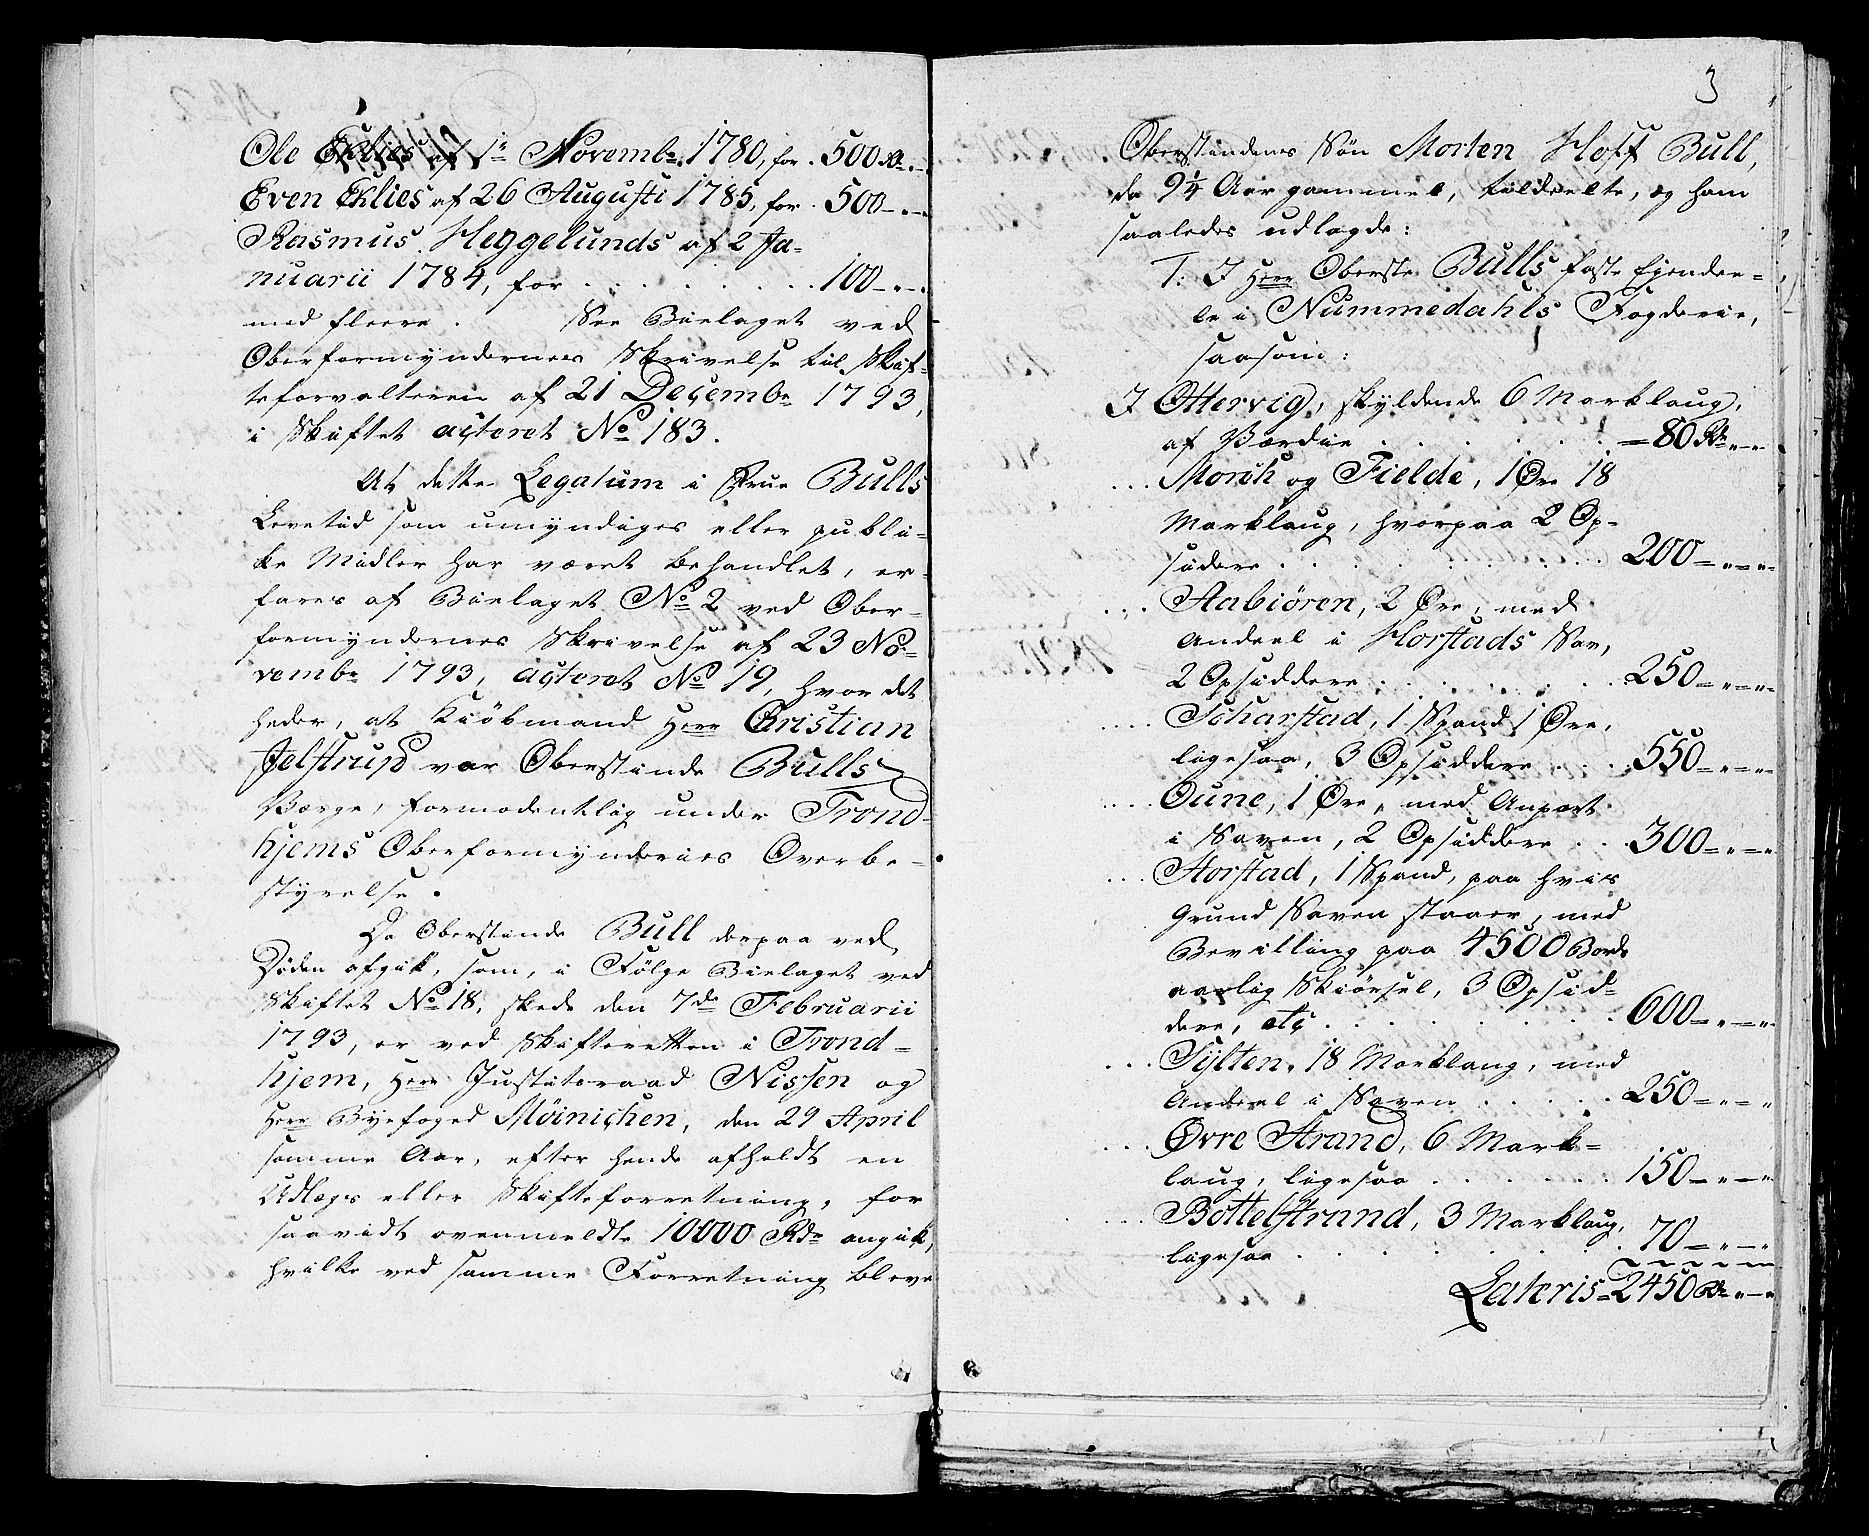 Ole Eklies af 1te Novembr. 1780, for . 500 Rd.
Even Eklies af 26 Augusti 1785, for . 500 - " -
Rasmus Heggelunds af 2 Ja-
nuarii 1784, for . . . . . . . . 100 - " -
med fleere . See Bielaget ved
Oberformyndernes Skrivelse til Skif-
teforvalteren af 21 Decembr 1793,
i Skiftet acteret No 183.
At dette Legatum i Frue Bulls
Levetid som umyndiges eller publi-
ke Midler har været behandlet, er-
fares af Bielaget No 2 ved Ober-
formyndernes Skrivelse af 23 No-
vembr 1793, acteret No 19, hvor det
heder, at Kiöbmand Herr Christian
Jelstrup var Oberstinde Bulls
Værge, formodentlig under Trond-
hjems Oberformynderies Overbe-
styrelse.
Da Oberstinde Bull derpaa ved
Döden afgik, som, i Fölge Bielaget ved
Skiftet No 18, skede den 7de Februarii
1793, er ved Skifteretten i Trond-
hjem, Herr Justitsraad Nissen og
Herr Byefoged Möinichen, den 29 April
samme Aar, efter hende afholdt en
Udlægs eller Skifteforretning, for
saavidt ovenmeldte 10000 Rdr angik,
hvilke ved samme Forretning bleve
3
Oberstindens Sön Morten Hoff Bull,
da 9 1/4 Aar gammel, tildeelte, og ham
saaledes udlagde:
1: I Herr Oberste Bulls faste Eiendee-
le i Nummedahls Fogderie,
saasom:
I Ottervig, skyldende 6 Marklaug,
af Værdie . . . . . . = 80 Rd " - "
... Morich og Fielde, 1 Øre 18
Marklaug, hvorpaa 2 Op-
sidere . . . . . . . . 200 = " = "
... Aabiören, 2 Øre, med
Andeel i Horstads Sav,
2 Opsiddere . . . . . . 250 = " = "
.... Scharstad, 1 Spand 1 Øre,
ligesaa, 3 Opsiddere . . . 550 = " = "
.... Oune, 1 Øre, med Anpart
i Saven, 2 Opsiddere . . . 300 = " = "
... Horstad, 1 Spand, paa hvis
Grund Saven staaer, med
Bevilling paa 4500 Bords
aarlig Skiörsel, 3 Opsid-
dere, etc . . . . . . . 600 = " = "
... Sylten, 18 Marklaug, med
Andeel i Saven . . . . . 250 = " = "
... Øvre Strand, 6 Mark-
laug, ligesaa . . . . . . 150 - " - "
.... Bottelstrand, 3 Marklaug,
ligesaa . . . . . . . . 70 = " - "
Lateris = 2450 Rd " - "